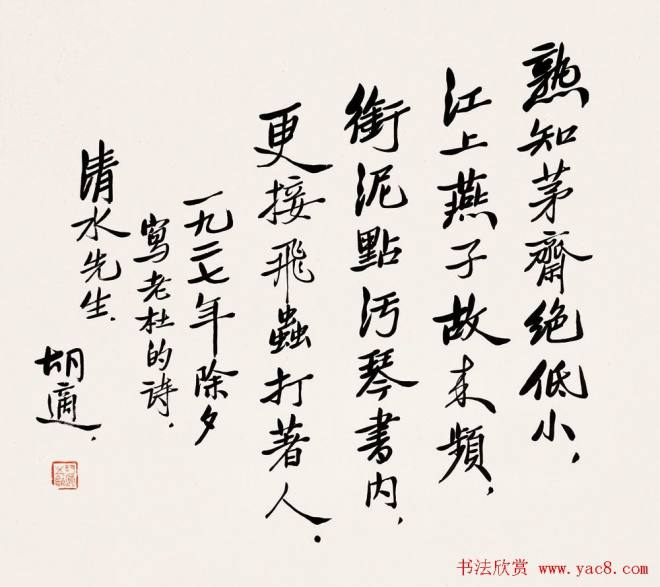 熟知茅齋绝低小，
江上燕子故来頻，
銜泥點汚琴書内，
更接飛蟲打著人．
一九二七年除夕
寫老杜的詩，
清水先生．
胡適．
书法欣赏 www.yac8.com